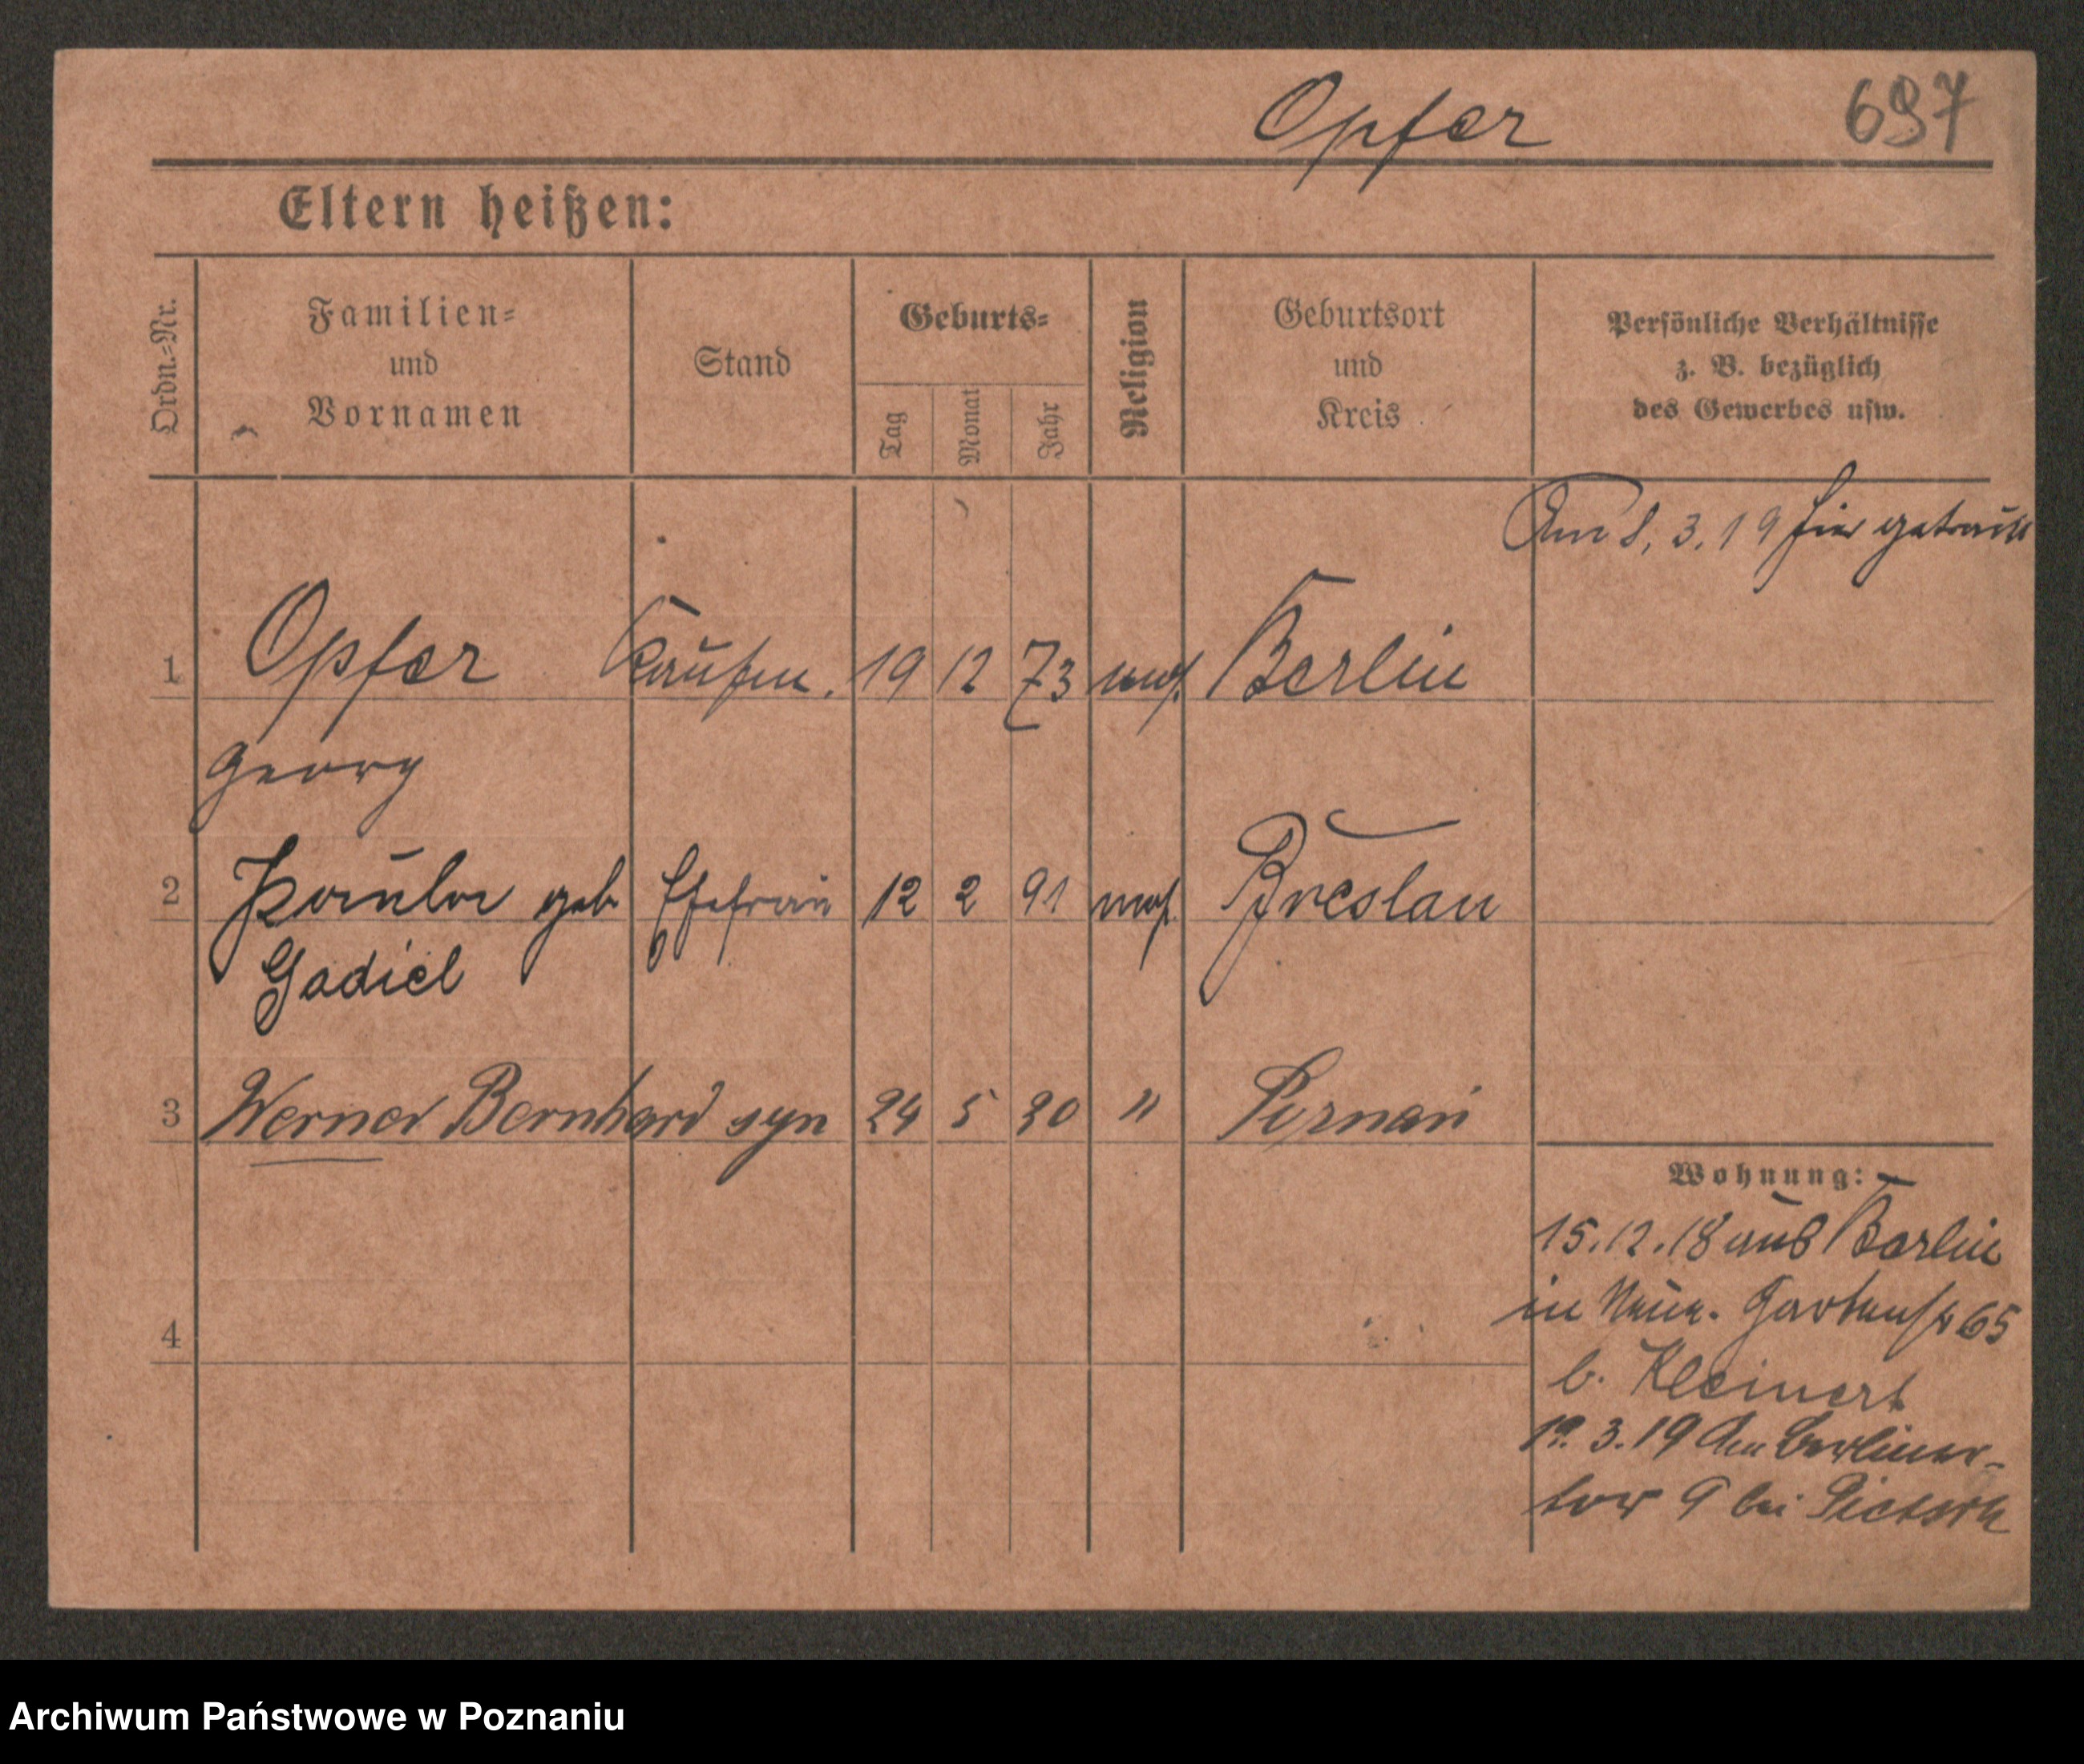 Opfer 697
Eltern heißen:
Ordn.-Nr.
Familien-
und
Vornamen
Stand
Geburts-
Tag
Monat
Jahr
Religion
Geburtsort
und
Kreis
Persönliche Verhältnisse
z. B. bezüglich
des Gewerbes usw.
Am 8. 3. 19 hier getraut
1 Opfer Kaufm. 19 12 73 mos. Berlin
Georg
2 Paula geb Ehefrau 12 2 91 mos. Breslau
Gadiel
3 Werner Bernhard syn 24 5 20 " Poznań
Wohnung:
15.12.18 aus Berlin
in Neue. Gartenstr 65
4
b. Kleinert
3.19 Am Berliner-
tor 9 bei
Archiwum Państwowe w Poznaniu